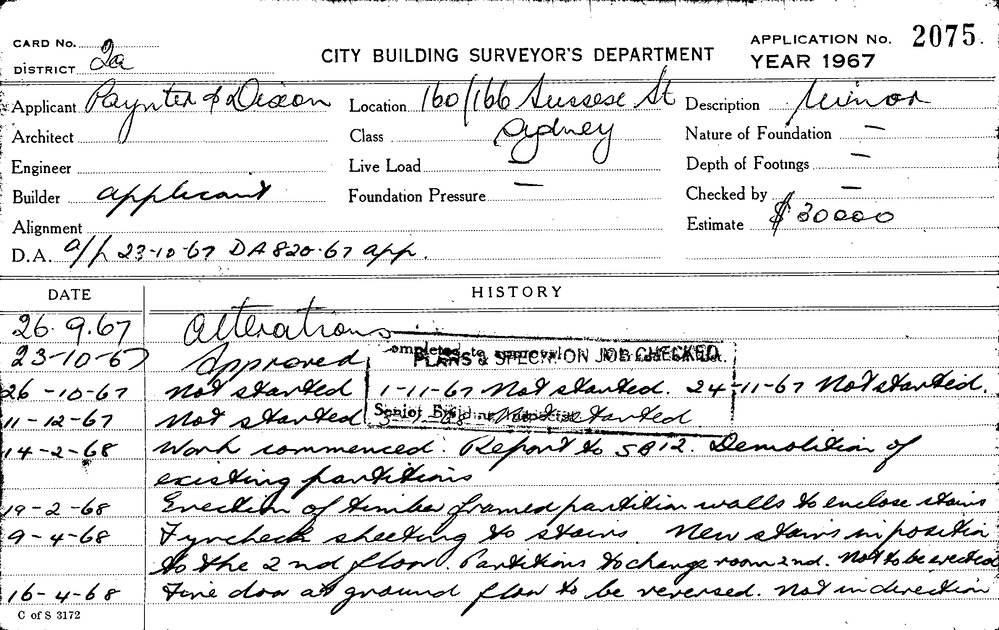 CARD No.
DISTRICT 2a
CITY BUILDING SURVEYOR'S DEPARTMENT
APPLICATION No. 2075.
YEAR 1967
Applicant Paynter & Dixon
Location 160/166 Sussex St
Sydney
Description Minor
Architect
Class
Nature of Foundation —
Engineer
Live Load —
Depth of Footings —
Builder applicant
Foundation Pressure —
Checked by —
Alignment
Estimate $30000
D.A. a/p 23-10-67 DA 820.67 app.
DATE HISTORY
26.9.67 Alterations
23-10-67 Approved
completed to PLANS & SPEC'N ON JOB CHECKED
26-10-67 Not started 1-11-67 Not started. 24-11-67 Not started.
11-12-67 Not started Senior Building Not started
14-2-68 Work commenced. Report to SB12. Demolition of
existing partitions
19-2-68 Erection of timber framed partition walls to enclose stairs
9-4-68 Fyrcheck sheeting to stairs. New stairs in position
to the 2nd floor. Partitions to change room 2nd. Not to be erected
16-4-68 Fire door at ground floor to be reversed. Not in direction
C of S 3172